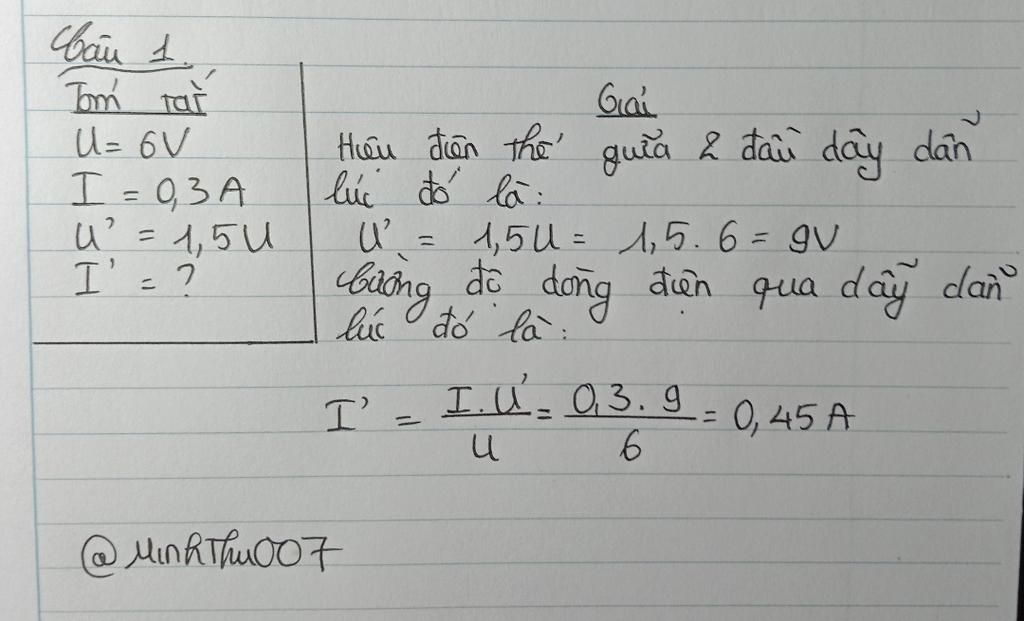 Câu 1.
Tóm tắt
U = 6V
I = 0,3 A
U' = 1,5U
I' = ?
Giải
Hiệu điện thế giữa 2 đầu dây dẫn
lúc đó là:
U' = 1,5U = 1,5. 6 = 9V
Cường độ dòng điện qua dây dẫn
lúc đó là:
I' = I.U'/U = 0,3.9/6 = 0,45 A
@MinhThu007